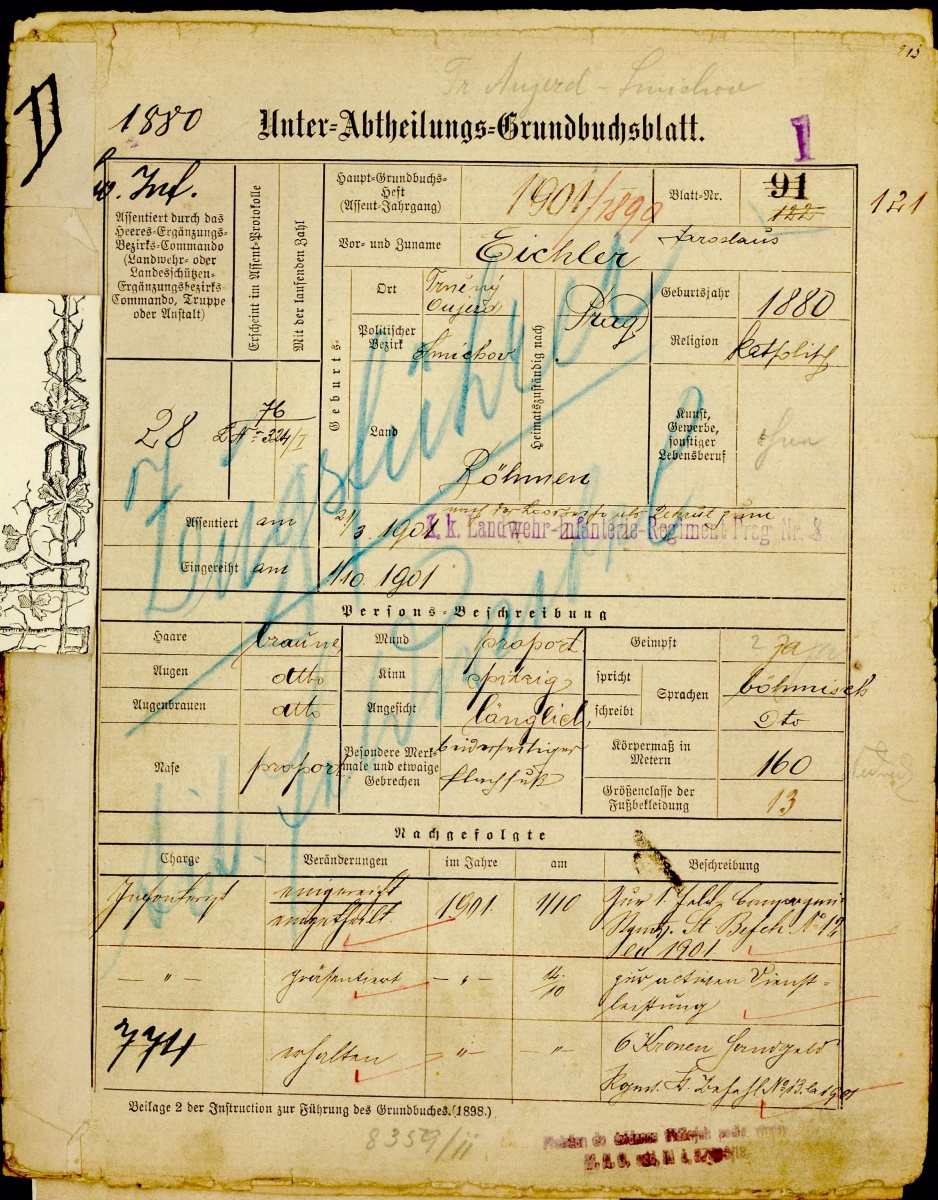 1880
Unter-Abtheilungs-Grundbuchsblatt.
1
Inf.
Assentiert durch das
Heeres-Ergänzungs-
Bezirks-Commando
(Landwehr- oder
Landesschützen-
Ergänzungsbezirks-
Commando, Truppe
oder Anstalt)
28
Erscheint im Assent-Protokolle
Mit der laufenden Zahl
76
Haupt-Grundbuchs-
Heft
(Assent-Jahrgang)
1901/1899
Blatt-Nr.
91
122
121
Vor- und Zuname
Eichler Jaroslaus
Geburts-
Ort
Trněný
Oujezd
Politischer
Bezirk
Smichov
Land
Böhmen
Heimatszuständig nach
Prag
Geburtsjahr
1880
Religion
katholisch
Kunst,
Gewerbe,
sonstiger
Lebensberuf
Assentiert am
21/3. 1901
k. k. Landwehr-Infanterie-Regiment Prag Nr. 8
Eingereiht am
1/10. 1901
Persons-Beschreibung
Haare braune
Mund proport
Geimpft ja
Augen dtto
Kinn spitzig
spricht
schreibt
Sprachen
böhmisch
Dto
Augenbrauen dtto
Angesicht länglich
Nase proport
Besondere Merk-
male und etwaige
Gebrechen
beiderseitiger
Plachfuß
Körpermaß in
Metern
160
Größenclasse der
Fußbekleidung
13
Nachgefolgte
Charge Veränderungen im Jahre am Beschreibung
Infanterist eingereiht
eingetheilt 1901. 1/10 Zur 1. Feld-Compagnie
Rgmts. St. Befeh. No 12
ex 1901
— " — präsentiert — " — 14/10 zur activen Dienst-
leistung
774
erhalten — " — — " — 6 Kronen Handgeld
Rgmts. St. Befehl No 13. ex 1901
Beilage 2 der Instruction zur Führung des Grundbuches. (1898.)
8359/ii